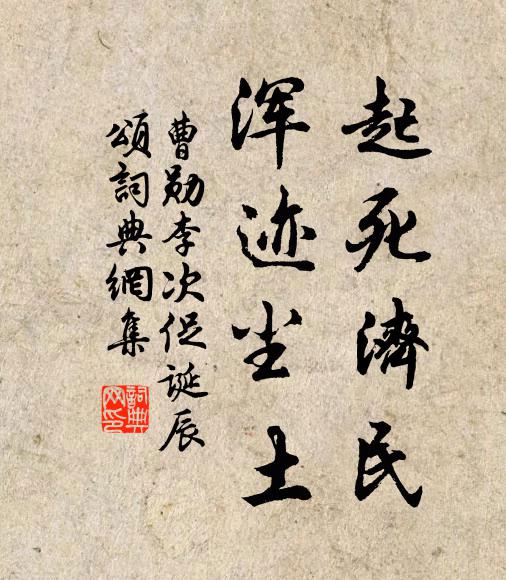 起死濟民
浑迹尘土
曹勋李次促誕辰
頌詞典網集
詞典
网印